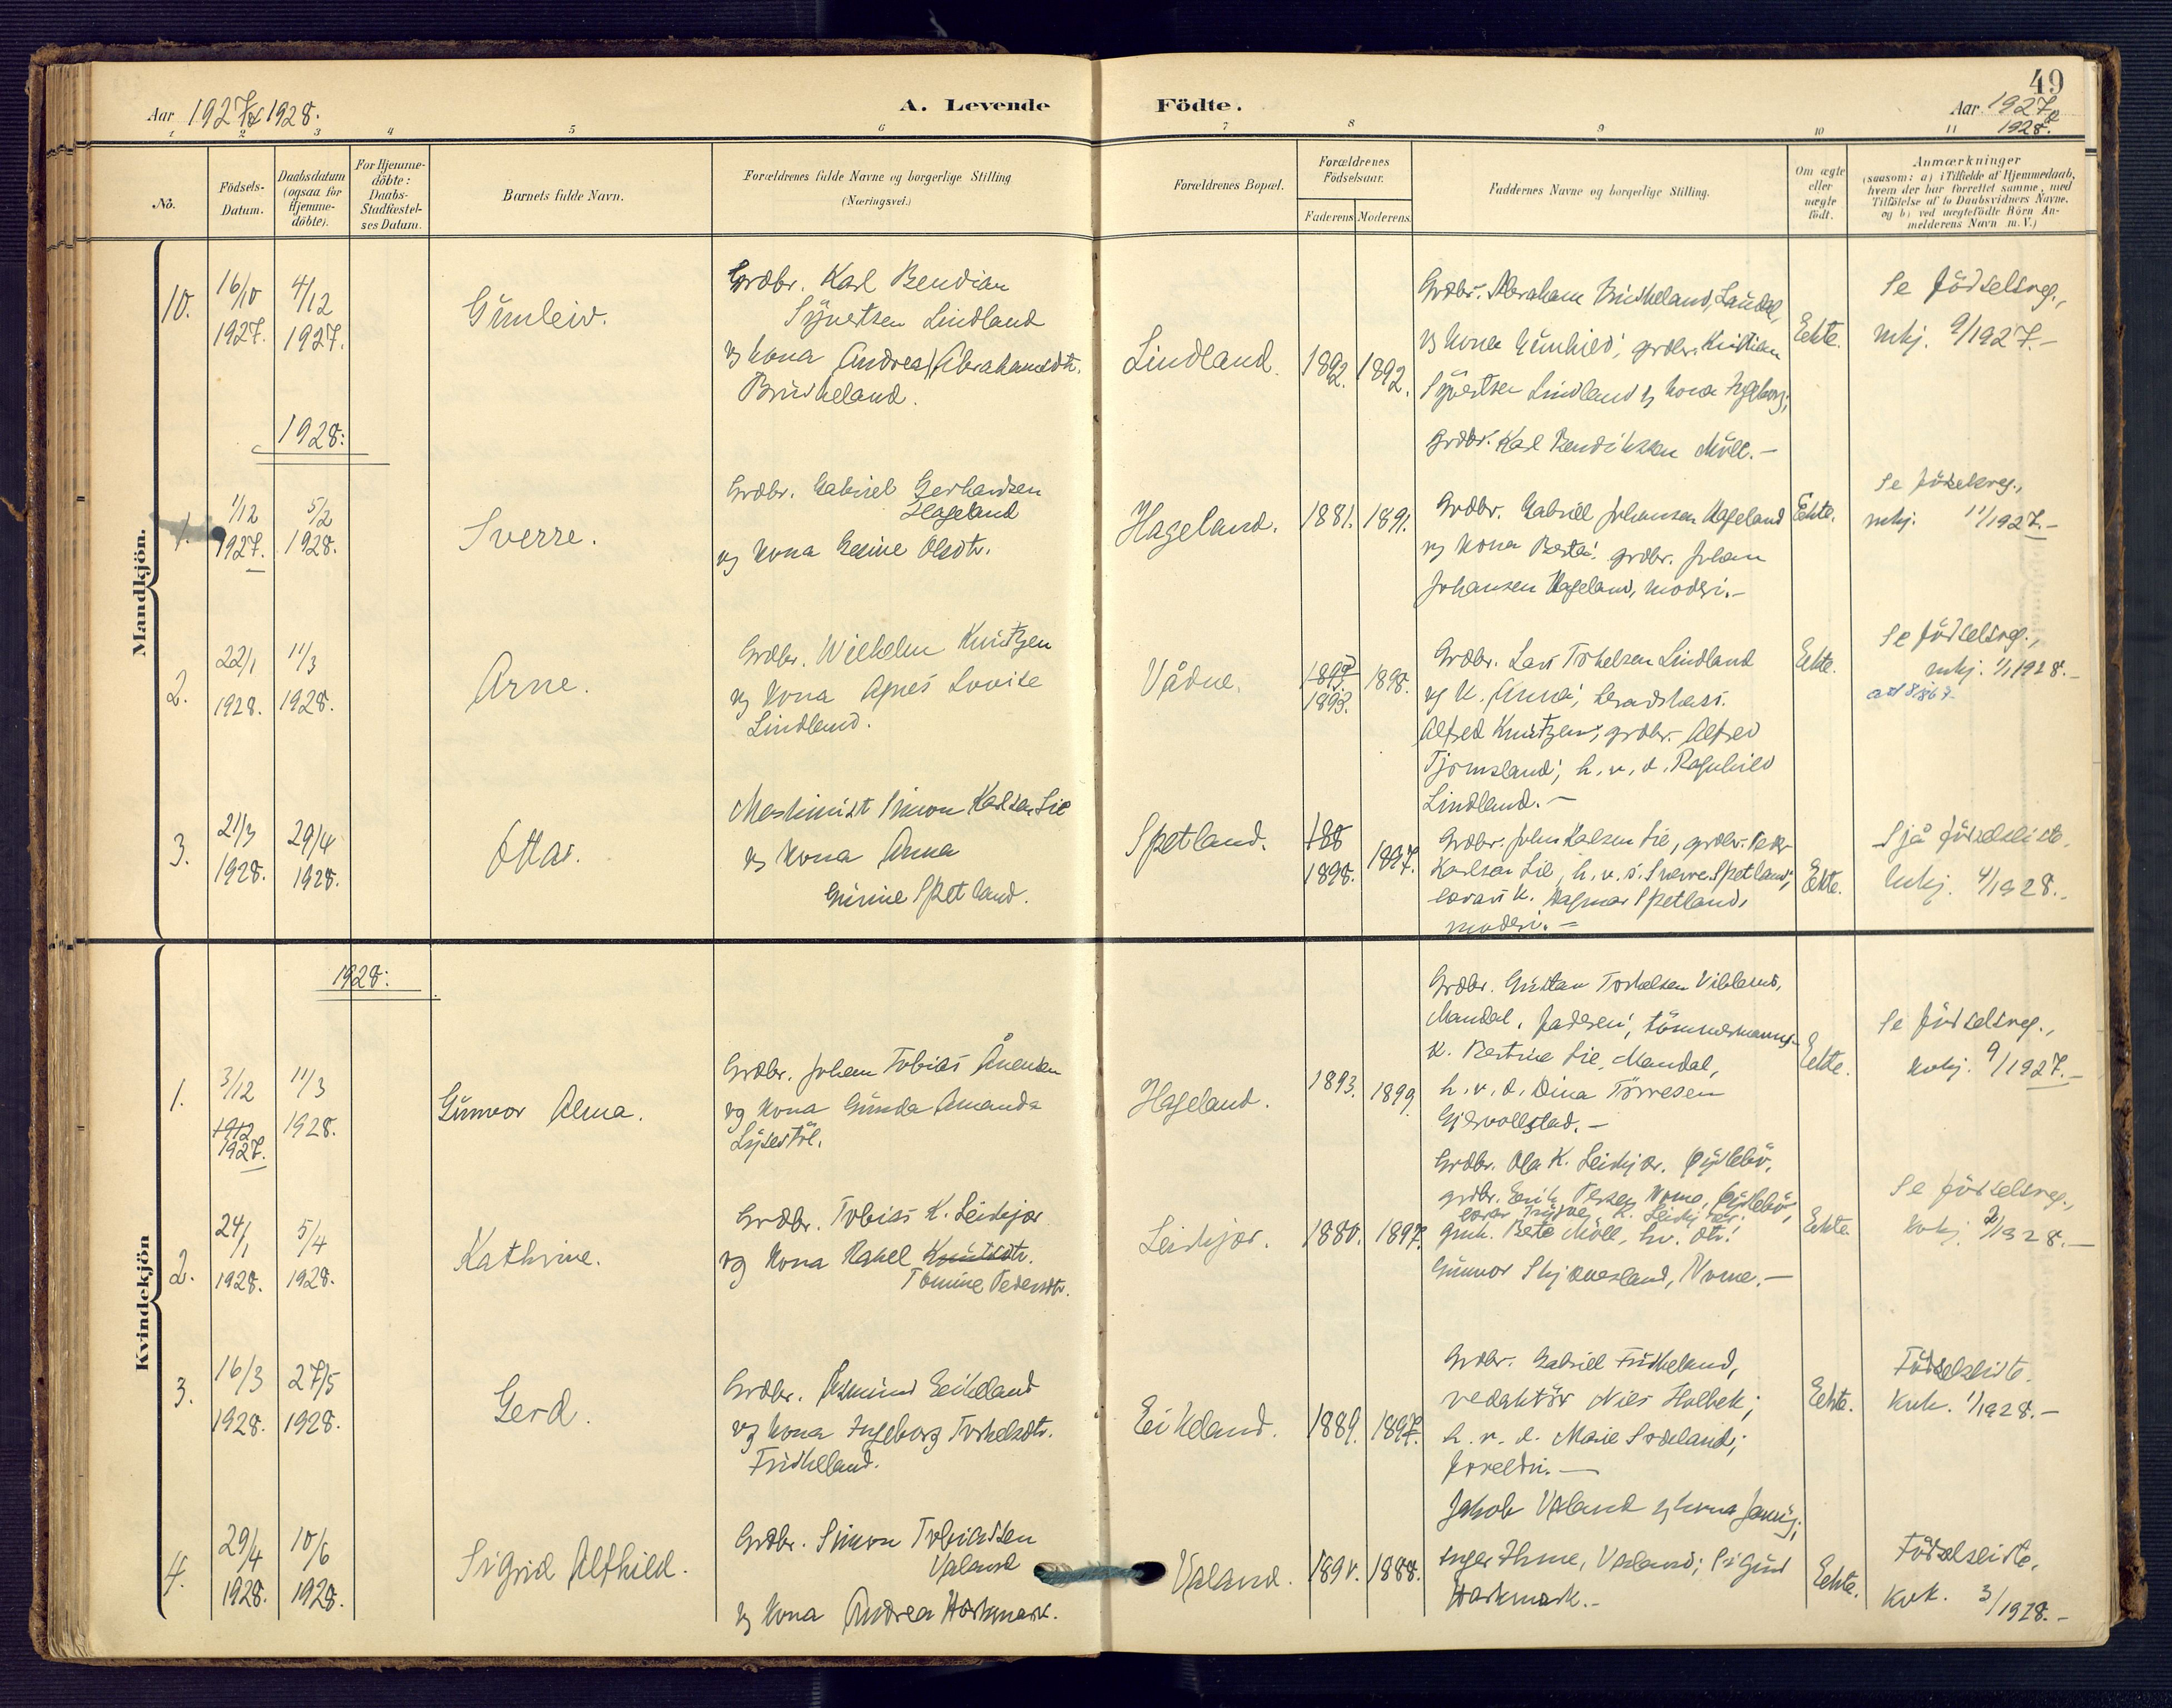 49
Aar 1927 & 1928.
A. Levende Födte.
Aar 1927 &
1928.
1 2 3 4 5 6 7 8 9 10 11
No.
Födsels-
Datum.
Daabsdatum
(ogsaa for
Hjemme-
döbte).
For Hjemme-
döbte:
Daabs-
Stadfæstel-
ses Datum.
Barnets fulde Navn.
Forældrenes fulde Navne og borgerlige Stilling
(Næringsvei.)
Forældrenes Bopæl.
Forældrenes
Födselsaar.
Faderens.
Moderens.
Faddernes Navne og borgerlige Stilling.
Om ægte
eller
uægte
födt.
Anmærkninger
(saasom: a) i Tilfælde af Hjemmedaab,
hvem der har forrettet samme, med
Tilföielse af to Daabsvidners Navne,
og b) ved uægtefödte Börn An-
melderens Navn m.V.)
Mandkjön.
10.
16/10
1927.
4/12
1927.
Gunleiv.
Grdbr. Karl Bendian
Syvertsen Lindland
og kona Andrea Abrahamsdtr.
Bruskeland.
Lindland.
1892.
1892.
Grdbr. Abraham Bruskeland, Laudal,
og kona Gunhild; grdbr. Kristian
Syvertsen Lindland og kona Ingeborg;
Grdbr. Karl Bendiksen Möll.-
Ekte.
Se födselsreg.,
mkj. 9/1927.-
1928:
1.
1/12
1927.
5/2
1928.
Sverre.
Grdbr. Gabriel Gerhardsen
Hageland
og kona Gesine Olsdtr.
Hageland.
1881.
1891.
Grdbr. Gabriel Johansen Hageland
og kona Berta; grdbr. Johan
Johansen Hageland, moderi.-
Ekte.
Se födselsreg.,
mkj. 11/1927.-
2.
22/1
1928.
11/3
1928.
Arne.
Grdbr. Wilhelm Knutzen
og kona Agnes Lovise
Lindland.
Vådne.
1893.
1898.
Grdbr. Lars Torkelsen Lindland
og k. Anna;
Alfred Knutzen; grdbr. Alfred
Tjomsland; h.v.d. Ragnhild
Lindland.-
Ekte.
Se födselsreg.,
mkj. 1/1928.-
3.
21/3
1928.
29/4
1928.
Ottar.
Maskinist Simon Karlsen Lie
og kona Anna
Gurine Spetland.
Spetland.
188
1898.
1897.
Grdbr. John Kalsen Lie, grdbr. Peder
Karlsen Lie, h.v.s. Sverre Spetland;
k. Dagmar Spetland,
moderi.-
Ekte.
Sjå födselsliste.
Mkj. 4/1928.-
Kvindekjön
1928:
1.
3/12
1912
1927.
11/3
1928.
Gunvor Alma.
Grdbr. Johan Tobias Ånensen
og kona Gunda Amanda
Lysestöl.
Hageland.
1893.
1899.
Grdbr. Gustav Torkelsen Vibland,
Mandal, faderen; tömmermanns-
k. Bertine Lie, Mandal,
h.v.d. Dina Törresen
Gjervollstad.-
Ekte.
Se födselsreg.,
kvkj. 9/1927.-
2.
24/1
1928.
5/4
1928.
Kathrine.
Grdbr. Tobias K. Leiskjær
og kona Rakel Knutsdtr.
Tomine Pedersdtr.
Leiskjær.
1880.
1897.
Grdbr. Ola K. Leiskjær, Öyslebö,
grdbr. Erik Nome, Öyslebö,
K. Leiskjær;
gmk. Berte Möll,
Gunvor Skjævesland, Nome.-
Ekte.
Se födselsreg.,
kvkj. 2/1928.-
3.
16/3
1928.
27/5
1928.
Gerd.
Grdbr. Asmund Eikeland
og kona Ingeborg Torkelsdtr.
Fuskeland.
Eikeland.
1889.
1897.
Grdbr. Gabriel Fuskeland,
redaktör Nils Holbek;
h.v.d. Marie Sodeland;
foreldri.-
Ekte.
Födselsliste.
Kvk. 1/1928.-
4.
29/4
1928.
10/6
1928.
Sigrid Alfhild.
Grdbr. Simon Tobiassen
Valand
og kona Andrea Harkmark.
Valand.
1890.
1888.
Jakob Valand og kona Jenny;
Inger Valand; Sigurd
Harkmark.-
Ekte.
Födselsliste.
Kvk. 3/1928.-